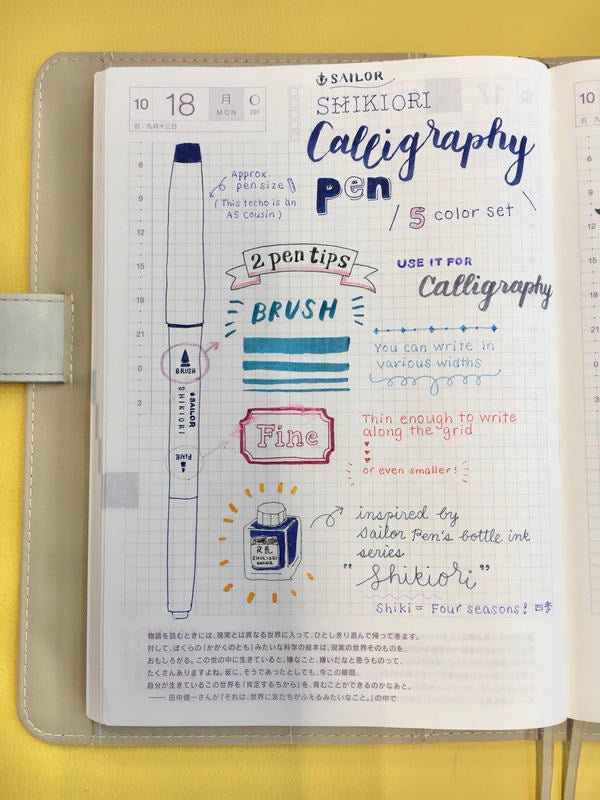 SAILOR
SHIKIORI
Calligraphy
pen
/ 5 color set \
10 18 月 MON 291
旧:九月十三日
6
9
12
15
18
21
0
3
Approx.
pen size
(This techo is an
A5 cousin)
2 pen tips
BRUSH
USE IT FOR
Calligraphy
You can write in
various widths
BRUSH
SAILOR
SHIKIORI
FINE
Fine
Thin enough to write
along the grid
or even smaller!
SHIKIORI
inspired by
Sailor Pen's bottle ink
series
"Shikiori"
Shiki = Four seasons! 四季
物語を読むときには、現実とは異なる世界に入って、ひとしきり遊んで帰ってきます。
対して、ぼくらの「かがくのとも」みたいな科学の絵本は、現実の世界そのものを、
おもしろがる。この世の中に生きていると、嫌なこと、嫌いだなと思うものって、
たくさんありますよね。仮に、そうであったとしても、今この瞬間、
自分が生きているこの世界を「肯定するちから」を、育むことができるのかなあと。
——田中健一さんが『それは、世界に友だちがふえるみたいなこと。』の中で
10
旧: